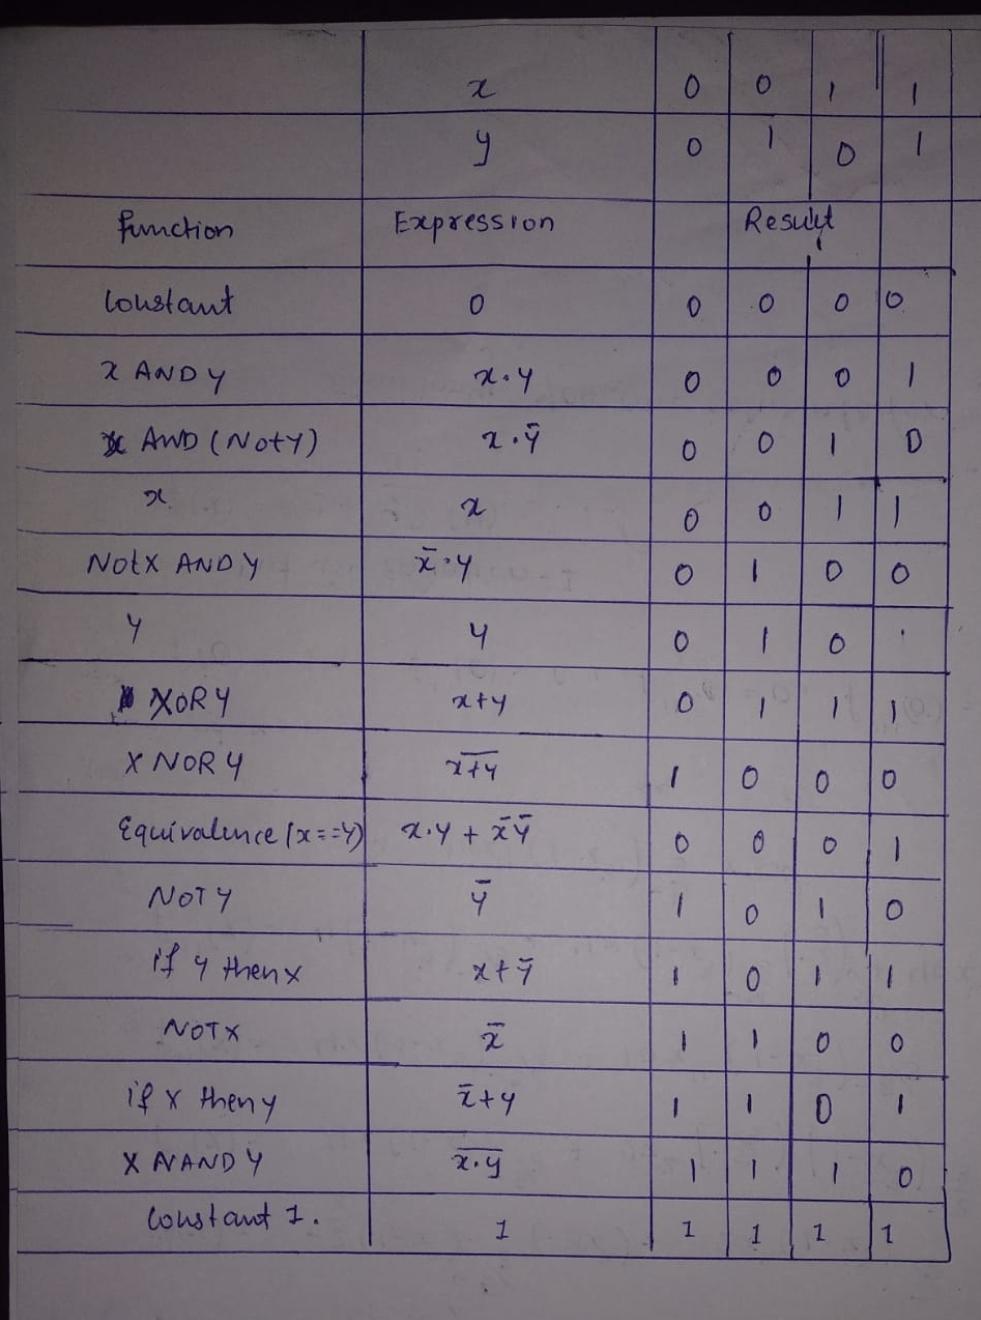 x 0 0 1 1
y 0 1 0 1
function Expression Result
Constant 0 0 0 0 0
x AND y x.y 0 0 0 1
x AND (Not y) x.ȳ 0 0 1 0
x x 0 0 1 1
Not X AND y x̄.y 0 1 0 0
y y 0 1 0
X OR Y x+y 0 1 1 1
X NOR Y x̅+̅y̅ 1 0 0 0
Equivalence (x==y) x.y + x̄ȳ 0 0 0 1
NOT Y ȳ 1 0 1 0
if y then x x+ȳ 1 0 1 1
NOT X x̄ 1 1 0 0
if x then y x̄+y 1 1 0 1
X NAND Y x̅.̅y̅ 1 1 1 0
Constant 1. 1 1 1 1 1